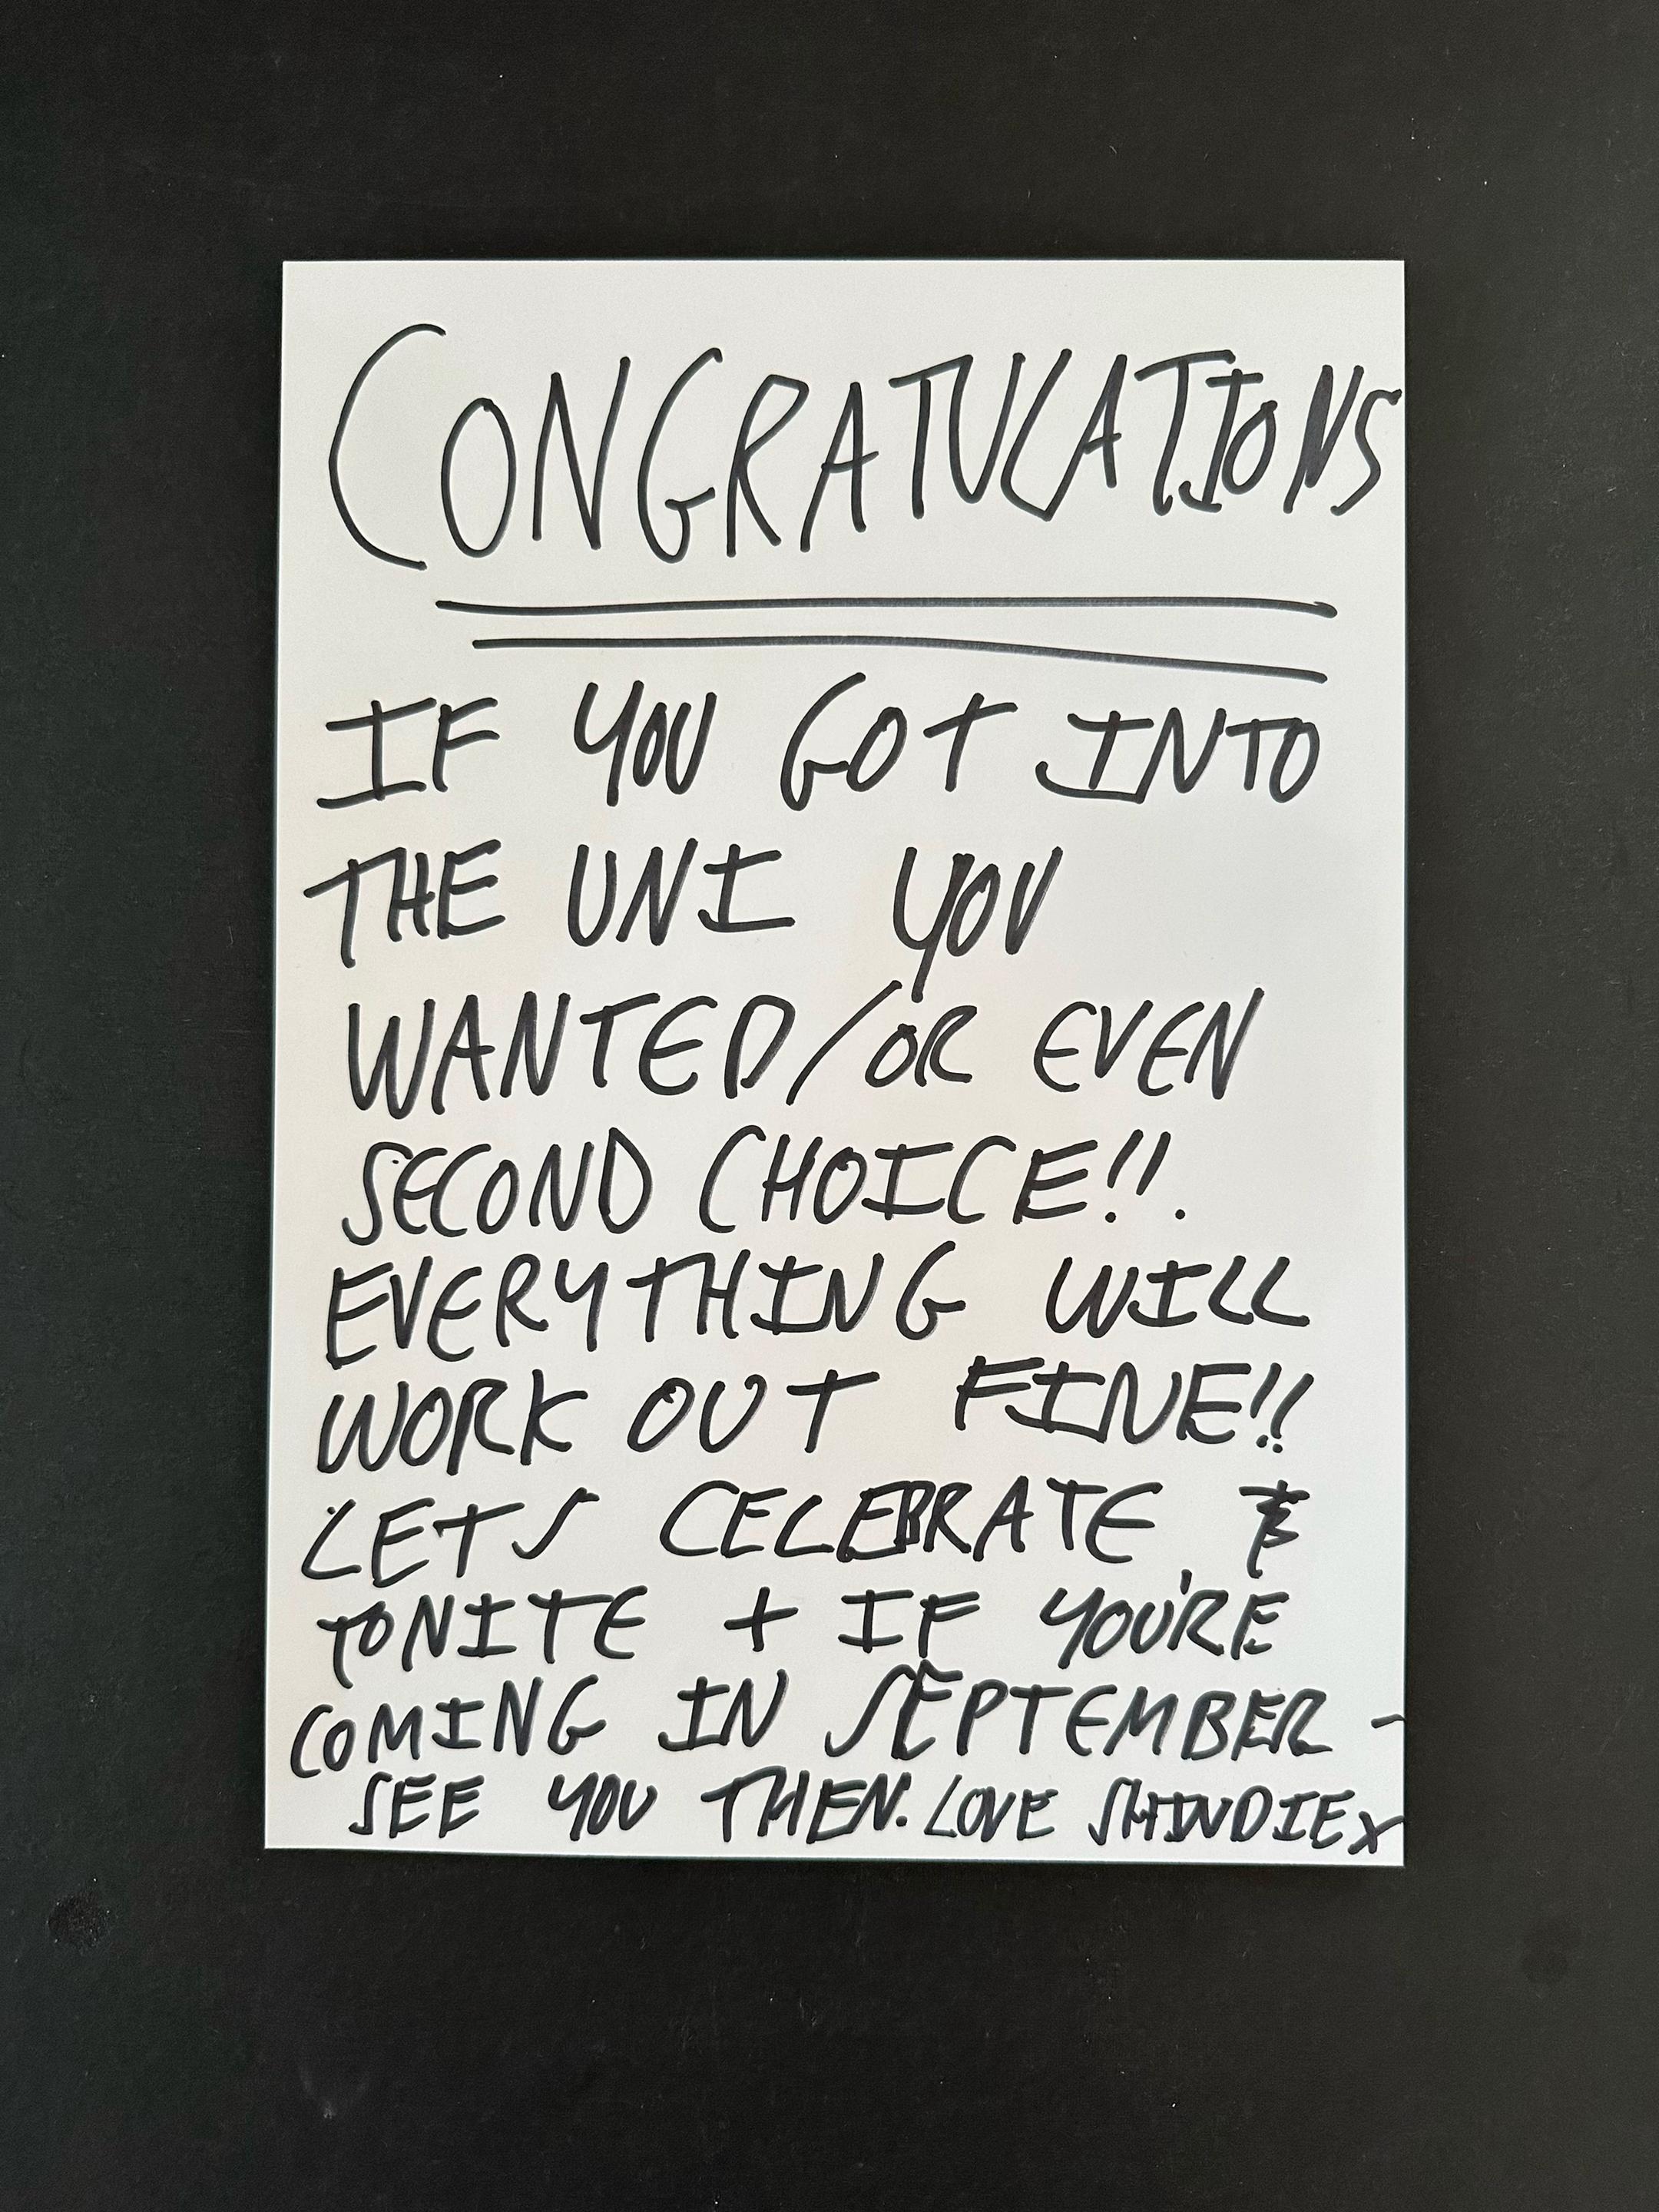 CONGRATULATIONS
IF YOU GOT INTO
THE UNI YOU
WANTED/OR EVEN
SECOND CHOICE!!.
EVERYTHING WILL
WORK OUT FINE!!
LETS CELEBRATE
TONITE + IF YOU'RE
COMING IN SEPTEMBER -
SEE YOU THEN. LOVE SHINDIE X